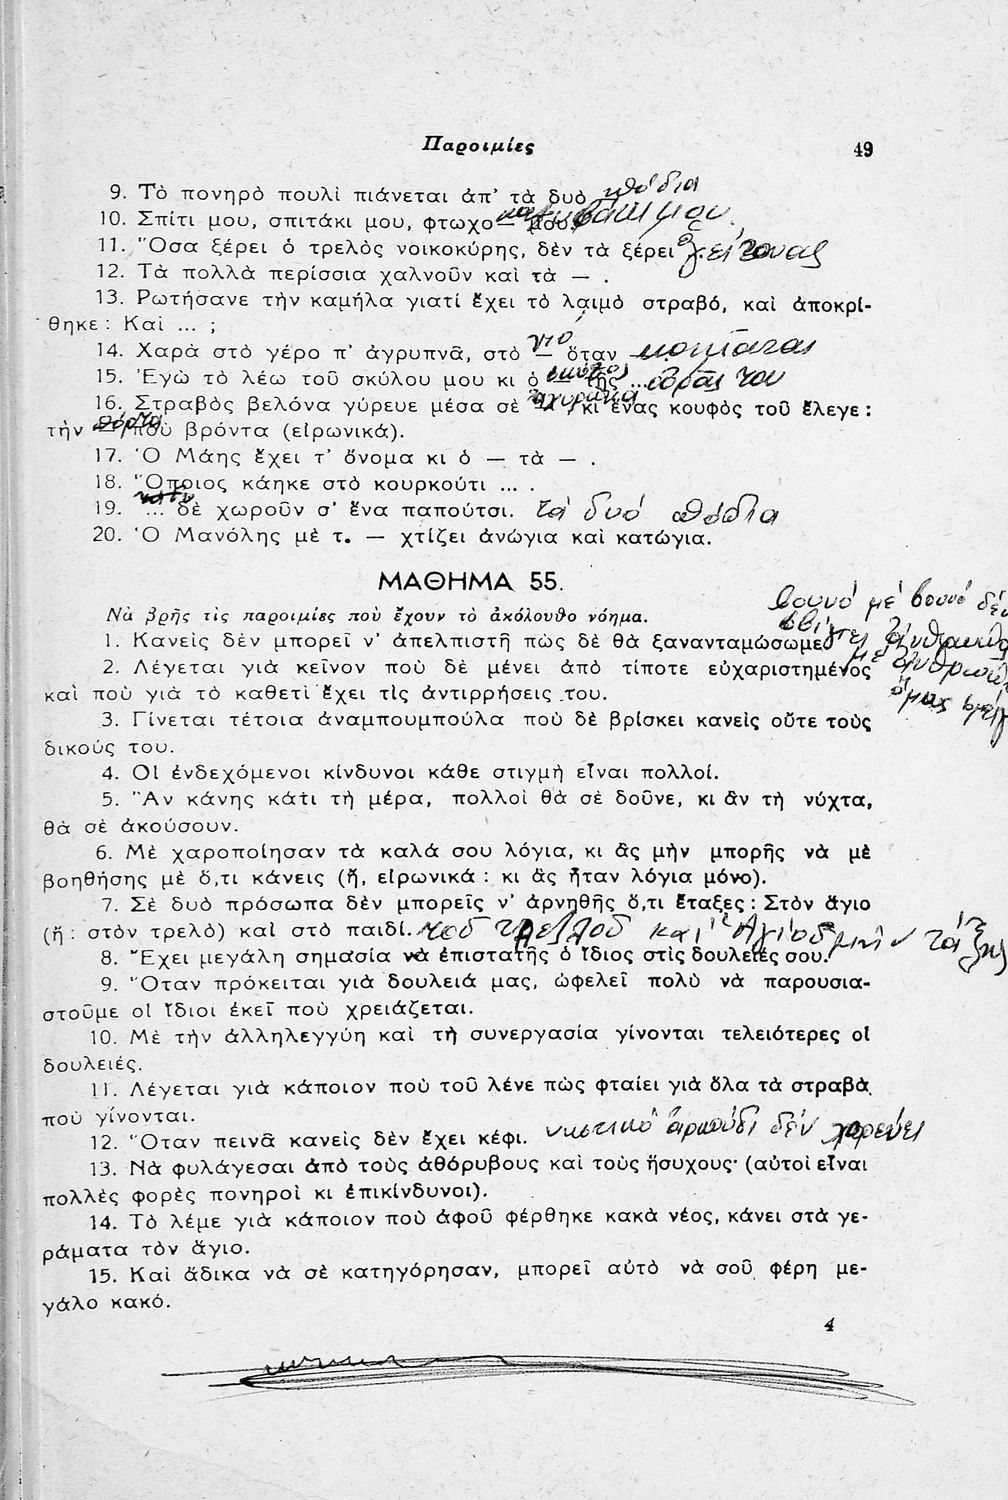 Παροιμίες 49
9. Τὸ πονηρὸ πουλὶ πιάνεται ἀπ' τὰ δυὸ πόδια
10. Σπίτι μου, σπιτάκι μου, φτωχο— μου.
11. Ὅσα ξέρει ὁ τρελὸς νοικοκύρης, δὲν τὰ ξέρει ὁ γείτονας
12. Τὰ πολλὰ περίσσια χαλνοῦν καὶ τὰ — .
13. Ρωτήσανε τὴν καμήλα γιατί ἔχει τὸ λαιμὸ στραβό, καὶ ἀποκρί-
θηκε : Καὶ ... ;
14. Χαρὰ στὸ γέρο π' ἀγρυπνᾶ, στὸ γιό — ὅταν — κοιμᾶται
15. Ἐγὼ τὸ λέω τοῦ σκύλου μου κι ὁ σκύλος — τῆς ... οὐρᾶς του
16. Στραβὸς βελόνα γύρευε μέσα σὲ ἀχυρῶνα κι ἕνας κουφὸς τοῦ ἔλεγε :
τὴν πόρτα ποὺ βρόντα (εἰρωνικά).
17. Ὁ Μάης ἔχει τ' ὄνομα κι ὁ — τὰ — .
18. Ὅποιος κάηκε στὸ κουρκούτι ... .
19. ... δὲ χωροῦν σ' ἕνα παπούτσι. τά δυό πόδια
20. Ὁ Μανόλης μὲ τ. — χτίζει ἀνώγια καὶ κατώγια.
ΜΑΘΗΜΑ 55.
βουνό μέ βουνό δέν
σμίγει ἄνθρωπος
μέ ἄνθρωπο
ὅμως σμίγ
Νὰ βρῆς τὶς παροιμίες ποὺ ἔχουν τὸ ἀκόλουθο νόημα.
1. Κανεὶς δὲν μπορεῖ ν' ἀπελπιστῆ πὼς δὲ θὰ ξανανταμώσωμε
2. Λέγεται γιὰ κεῖνον ποὺ δὲ μένει ἀπὸ τίποτε εὐχαριστημένος
καὶ ποὺ γιὰ τὸ καθετὶ ἔχει τὶς ἀντιρρήσεις του.
3. Γίνεται τέτοια ἀναμπουμπούλα ποὺ δὲ βρίσκει κανεὶς οὔτε τοὺς
δικούς του.
4. Οἱ ἐνδεχόμενοι κίνδυνοι κάθε στιγμὴ εἶναι πολλοί.
5. Ἂν κάνης κάτι τὴ μέρα, πολλοὶ θὰ σὲ δοῦνε, κι ἂν τὴ νύχτα,
θὰ σὲ ἀκούσουν.
6. Μὲ χαροποίησαν τὰ καλά σου λόγια, κι ἂς μὴν μπορῆς νὰ μὲ
βοηθήσης μὲ ὅ,τι κάνεις (ἤ, εἰρωνικά : κι ἂς ἦταν λόγια μόνο).
7. Σὲ δυὸ πρόσωπα δὲν μπορεῖς ν' ἀρνηθῆς ὅ,τι ἔταξες : Στὸν ἅγιο
(ἤ : στὸν τρελὸ) καὶ στὸ παιδί. τοῦ τρελλοῦ καί Ἁγίου μήν τάξῃς
8. Ἔχει μεγάλη σημασία νὰ ἐπιστατῆς ὁ ἴδιος στὶς δουλειές σου.
9. Ὅταν πρόκειται γιὰ δουλειά μας, ὠφελεῖ πολὺ νὰ παρουσια-
στοῦμε οἱ ἴδιοι ἐκεῖ ποὺ χρειάζεται.
10. Μὲ τὴν ἀλληλεγγύη καὶ τὴ συνεργασία γίνονται τελειότερες οἱ
δουλειές.
11. Λέγεται γιὰ κάποιον ποὺ τοῦ λένε πὼς φταίει γιὰ ὅλα τὰ στραβὰ
ποὺ γίνονται.
12. Ὅταν πεινᾶ κανεὶς δὲν ἔχει κέφι. νηστικό ἀρκούδι δέν χορεύει
13. Νὰ φυλάγεσαι ἀπὸ τοὺς ἀθόρυβους καὶ τοὺς ἥσυχους· (αὐτοὶ εἶναι
πολλὲς φορὲς πονηροὶ κι ἐπικίνδυνοι).
14. Τὸ λέμε γιὰ κάποιον ποὺ ἀφοῦ φέρθηκε κακὰ νέος, κάνει στὰ γε-
ράματα τὸν ἅγιο.
15. Καὶ ἄδικα νὰ σὲ κατηγόρησαν, μπορεῖ αὐτὸ νὰ σοῦ φέρη με-
γάλο κακό.
4